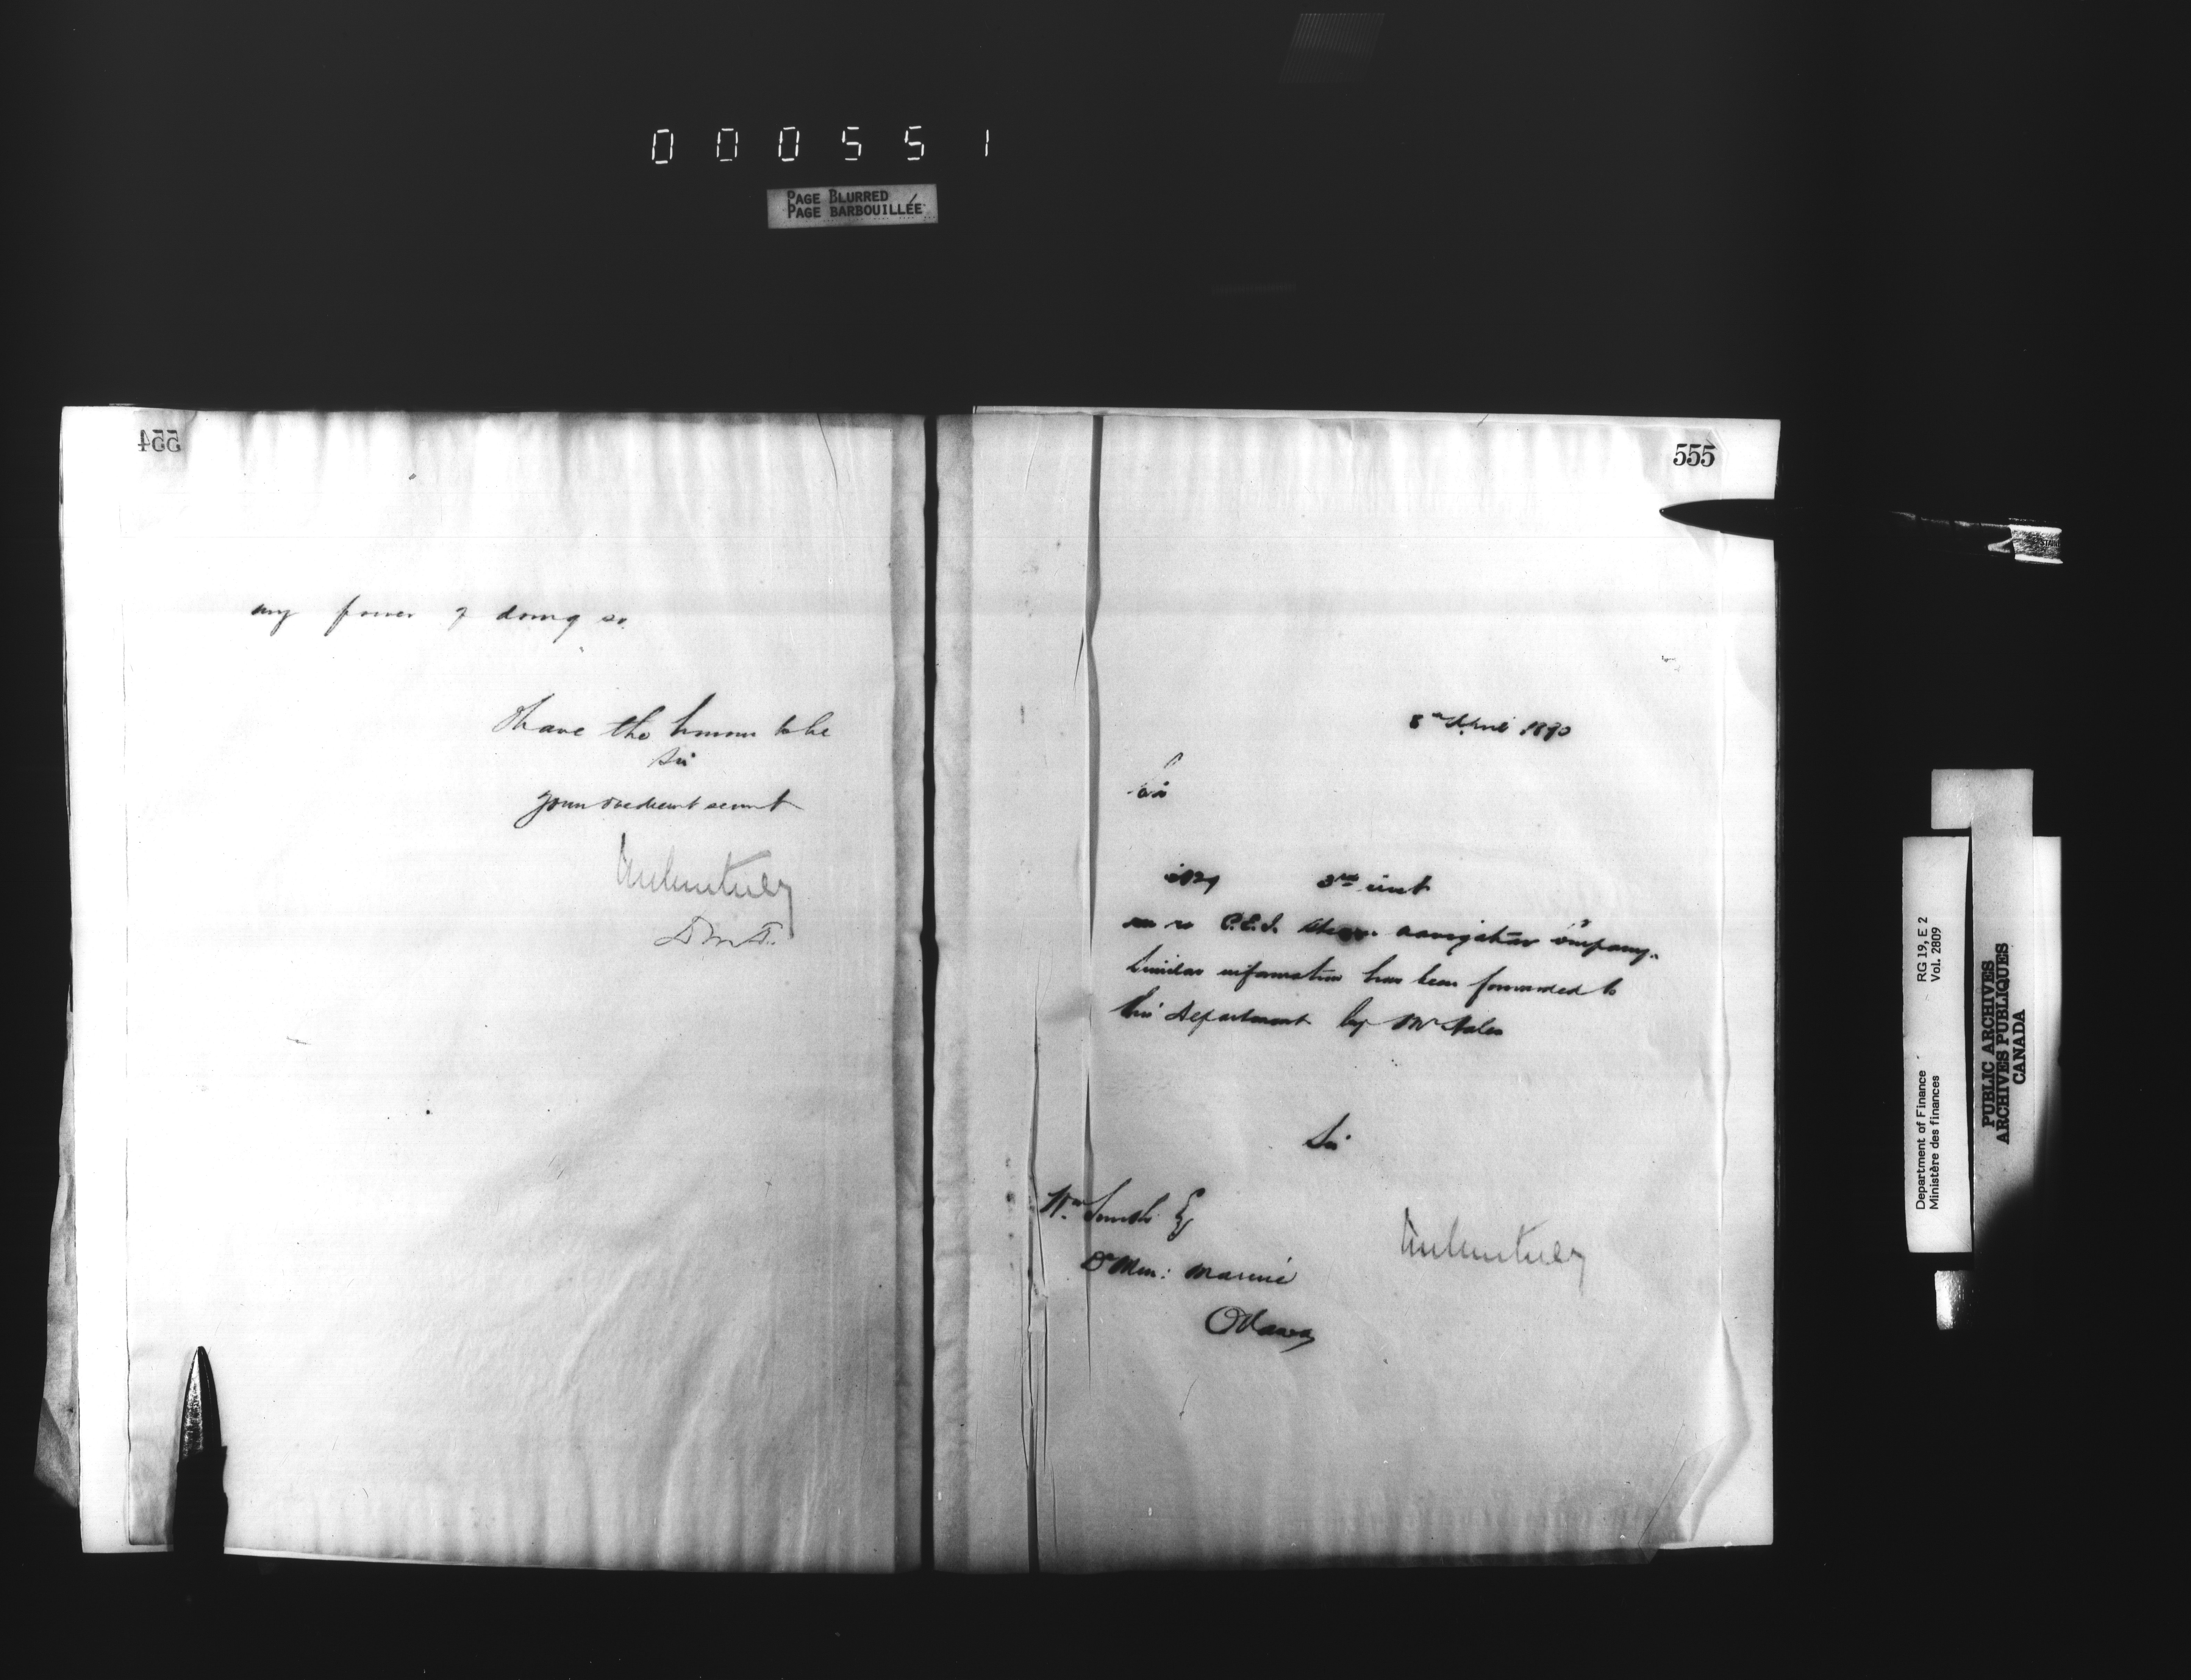 000551
PAGE BLURRED
PAGE BARBOUILLÉE
554
my power of doing so.
I have the honour to be
Sir
your obedient servant
D.M.F.
555
8th April 1890
Sir
3rd inst
re P.E.I. Steam navigation Company.
Similar information has been forwarded to
this Department by Mr
Sir
Wm Smith Esq
D Min: Marine
Ottawa
Department of Finance RG 19, E 2
Ministère des finances Vol. 2809
PUBLIC ARCHIVES
ARCHIVES PUBLIQUES
CANADA